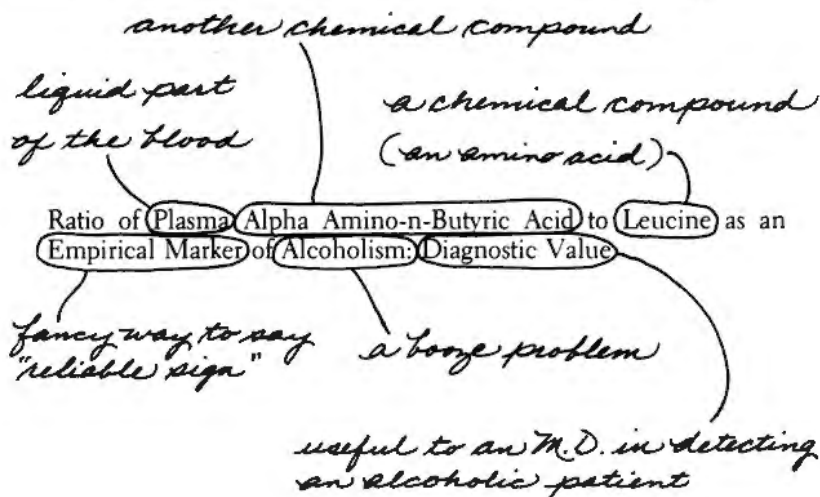 another chemical compound
liquid part
of the blood
a chemical compound
(an amino acid)
Ratio of Plasma Alpha Amino-n-Butyric Acid to Leucine as an
Empirical Marker of Alcoholism: Diagnostic Value
fancy way to say
"reliable sign"
a booze problem
useful to an M.D. in detecting
an alcoholic patient